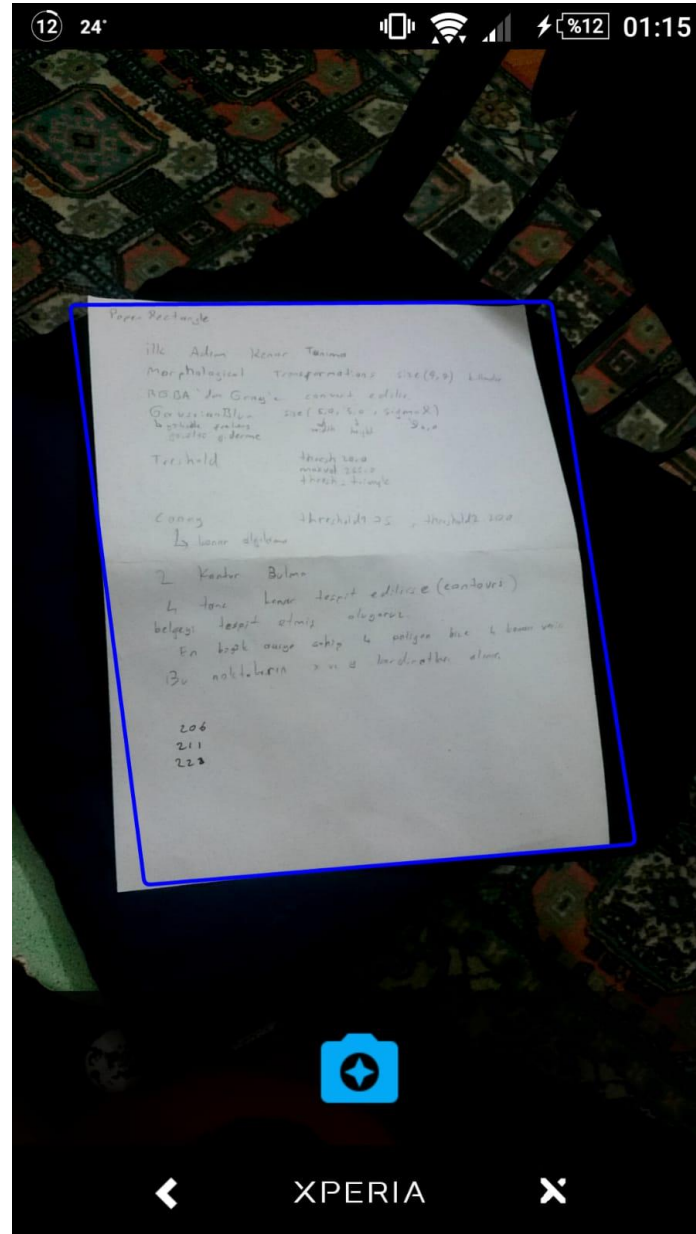 12 24° %12 01:15
Paper Rectangle
ilk Adım Kenar Tanıma
Morphological Transformations size(4,4)
convert edilir
GaussianBlur size(5.0, 5.0, sigmaX)
width height
giderme
Treshold thresh 20.0
maxval 255.0
thresh_triangle
Canny threshold1 25, threshold2 200
kenar algılama
2 Kontur Bulma
4 tane kenar tespit edilirse (contours)
belgeyi tespit etmiş oluyoruz.
En büyük sahip 4 poligon 4 kenar
Bu noktaların x ve y kordinatları
206
211
223
XPERIA